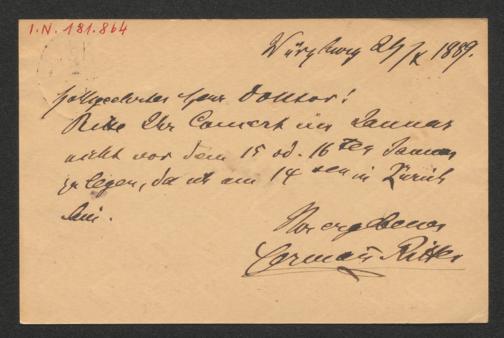 I.N. 181.864
Würzburg 24/X 1889.
Hochgeehrter Herr Doktor!
Bitte Ihr Concert im Januar
nicht vor dem 15 od. 16ten Januar
zu legen, da ich am 14ten in Zürich
bin.
Ihr ergebener
Hermann Ritter